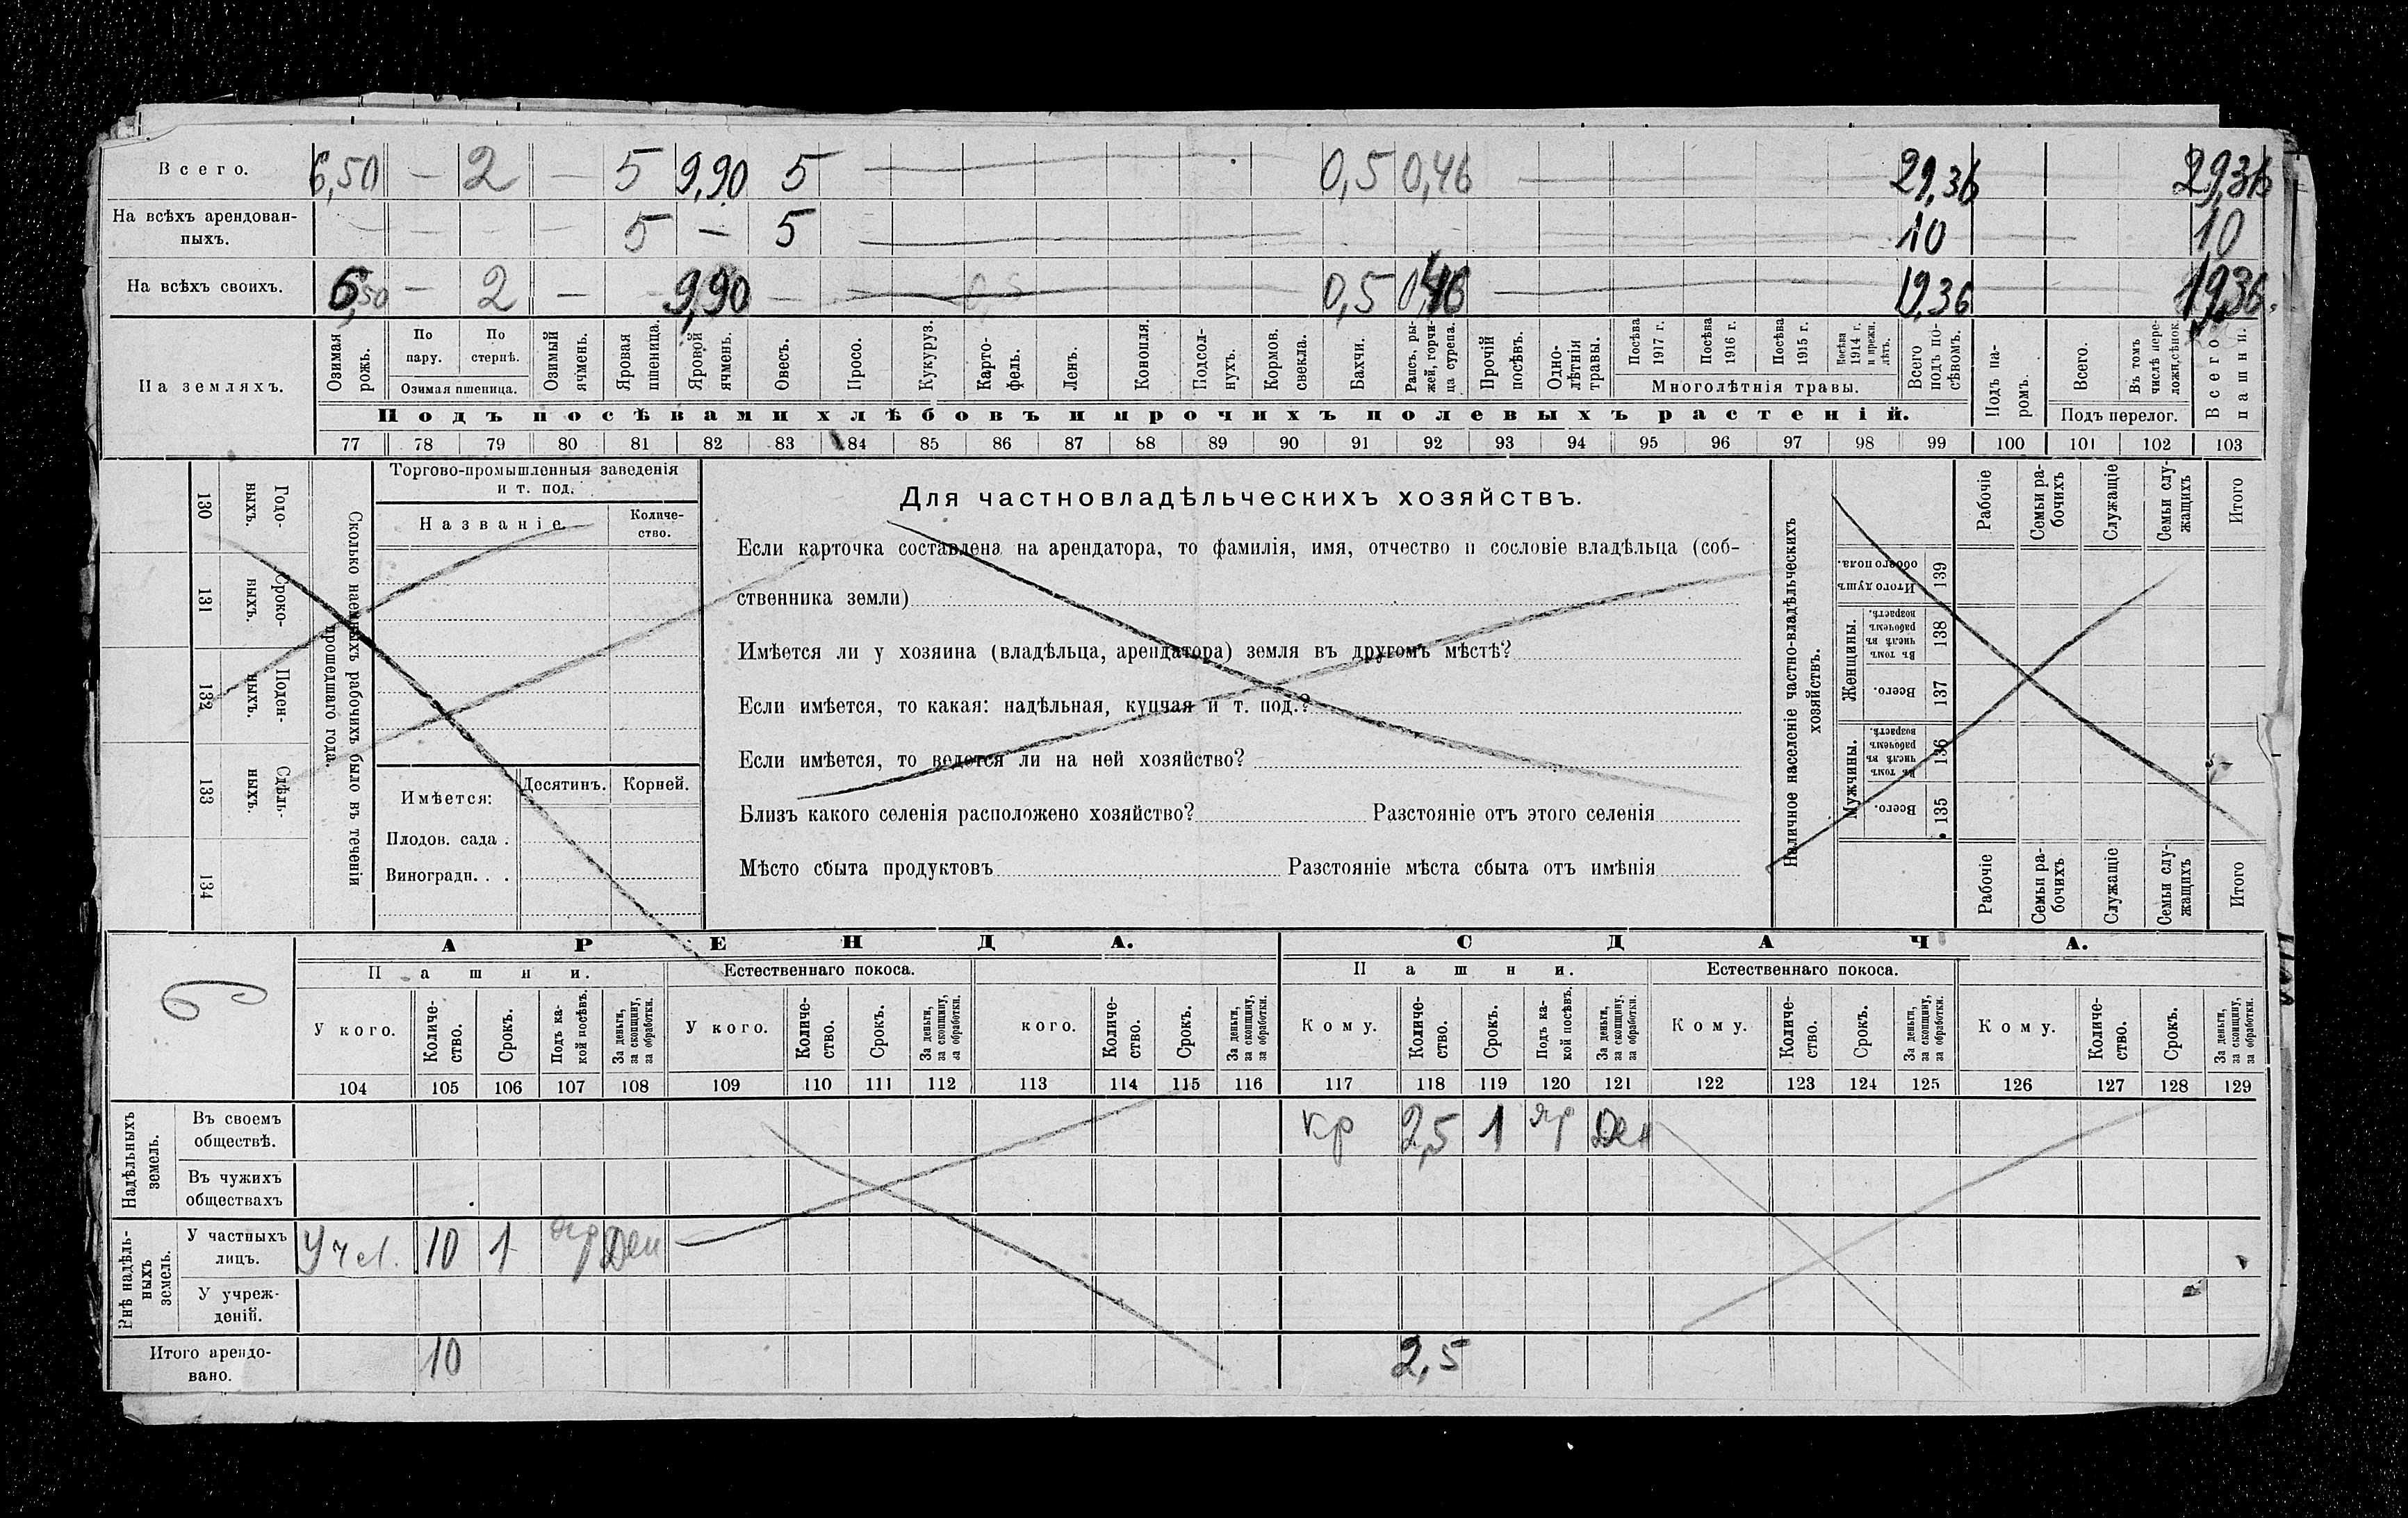 Всего. 6,50 — 2 — 5 9,90 5 — 0,5 0,46 — 29,36 29,36
На всѣхъ арендован-
ныхъ. — — — — 5 — 5 — 10 10
На всѣхъ своихъ. 6,50 — 2 — - 9,90 — 0,5 0,46 — 19,36 19,36.
На земляхъ.
Озимая рожь.
По пару.
По стернѣ.
Озимая пшеница.
Озимый ячмень.
Яровая пшеница.
Яровой ячмень.
Овесъ.
Просо.
Кукуруз.
Карто-
фель.
Ленъ.
Конопля.
Подсол-
нухъ.
Кормов.
свекла.
Бахчи.
Рапсъ, ры-
жей, горчи-
ца сурепа.
Прочій посѣвъ.
Одно-
лѣтнія
травы.
Посѣва 1917 г.
Посѣва 1916 г.
Посѣва 1915 г.
Посѣва 1914 г. и прежн. лѣтъ.
Многолѣтнія травы.
Всего подъ по-
сѣвомъ.
Подъ па-
ромъ.
Всего.
Въ томъ числѣ пере-
ложн. сѣнок.
Подъ перелог.
Всего пашни.
Подъ посѣвами хлѣбовъ и прочихъ полевыхъ растеній.
77 78 79 80 81 82 83 84 85 86 87 88 89 90 91 92 93 94 95 96 97 98 99 100 101 102 103
130 Годо-
ныхъ.
131 Сроко-
ныхъ.
132 Поден-
ныхъ.
133 Сдѣль-
ныхъ.
134
Сколько наемныхъ рабочихъ было въ теченіи
прошедшаго года.
Торгово-промышленныя заведенія
и т. под.
Названіе.
Количе-
ство.
Имѣется: Десятинъ. Корней.
Плодов. сада .
Виноградн. . .
Для частновладѣльческихъ хозяйствъ.
Если карточка составлена на арендатора, то фамилія, имя, отчество и сословіе владѣльца (соб-
ственника земли)
Имѣется ли у хозяина (владѣльца, арендатора) земля въ другомъ мѣстѣ?
Если имѣется, то какая: надѣльная, купчая и т. под.?
Если имѣется, то ведется ли на ней хозяйство?
Близъ какого селенія расположено хозяйство? Разстояніе отъ этого селенія
Мѣсто сбыта продуктовъ Разстояніе мѣста сбыта отъ имѣнія
Наличное населеніе частно-владѣльческихъ
хозяйствъ.
Рабочіе
Семьи ра-
бочихъ
Служащіе
Семьи слу-
жащихъ
Итого
Итого душъ
обоего пола. 139
Женщины.
Въ томъ числѣ въ рабочемъ возрастѣ. 138
Всего. 137
Мужчины.
Въ томъ числѣ въ рабочемъ возрастѣ. 136
Всего. 135
Рабочіе
Семьи ра-
бочихъ
Служащіе
Семьи слу-
жащихъ
Итого
АРЕНДА. СДАЧА.
Пашни. Естественнаго покоса. Пашни. Естественнаго покоса.
У кого.
Количе-
ство.
Срокъ.
Подъ ка-
кой посѣвъ.
За деньги,
за скопщину,
за обработки.
У кого.
Количе-
ство.
Срокъ.
За деньги,
за скопщину,
за обработки.
кого.
Количе-
ство.
Срокъ.
За деньги,
за скопщину,
за обработки.
Кому.
Количе-
ство.
Срокъ.
Подъ ка-
кой посѣвъ.
За деньги,
за скопщину,
за обработки.
Кому.
Количе-
ство.
Срокъ.
За деньги,
за скопщину,
за обработки.
Кому.
Количе-
ство.
Срокъ.
За деньги,
за скопщину,
за обработки.
104 105 106 107 108 109 110 111 112 113 114 115 116 117 118 119 120 121 122 123 124 125 126 127 128 129
Надѣльныхъ
земель.
Въ своемъ
обществѣ. кр 2,5 1 яр Ден
Въ чужихъ
обществахъ
Внѣ надѣль-
ныхъ
земель.
У частныхъ
лицъ. 10 1 яр Ден
У учреж-
деній.
Итого арендо-
вано. 10 2,5